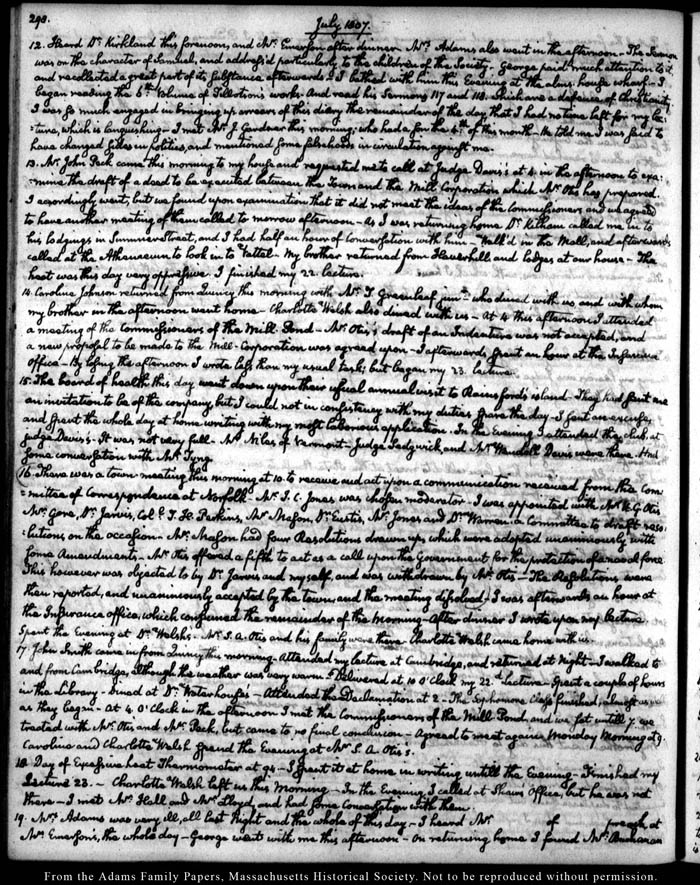 298.
July 1807.
12. Heard Dr. Kirkland this forenoon, and Mr. Emerson after dinner. Mrs. Adams also went in the afternoon. The Sermon
was on the character of Samuel, and address'd particularly to the children of the Society. George paid much attention to it
and recollected a great part of its substance afterwards. I bathed with him this Evening at the alms-house wharf. I
began reading the 6th. Volume of Tillotson's works. And read his Sermons 117 and 118. which are a defence of Christianity
I was so much engaged in bringing up arrears of this diary the remainder of the day that I had no time left for my lec-
-ture, which is languishing. I met Mr. J. Gardner this morning, who had a for the 4th. of this month. He told me I was said to
have changed sides in politics, and mentioned some falsehoods in circulation against me.
13. Mr. John Peck came this morning to my house and requested me to call at Judge Davis's at 4. in the afternoon to exa-
-mine the draft of a deed to be executed between the Town and the Mill Corporation which Mr. Otis has prepared.
I accordingly went, but we found upon examination that it did not meet the ideas of the Commissioners and we agreed
to have another meeting of them called to morrow afternoon. As I was returning home Dr. Kilham called me in to
his lodgings in Summer Street, and I had half an hour of conversation with him. Walk'd in the Mall, and afterwards
called at the Athenaeum to look in to Vattel. My brother returned from Haverhill and lodges at our house. The
heat was this day very oppressive. I finished my 22. lecture.
14. Caroline Johnson returned from Quincy this morning with Mr. T. Greenleaf junr. who dined with us, and with whom
my brother in the afternoon went home. Charlotte Welsh also dined with us. At 4 this afternoon I attended
a meeting of the Commissioners of the Mill Pond. Mr. Otis's draft of an Indenture was not accepted, and
a new proposal to be made to the Mill-Corporation was agreed upon. I afterwards spent an hour at the Insurance
Office. By losing the afternoon I wrote less than my usual task; but began my 23. lecture.
15. The board of health this day went down upon their usual annual visit to Rainsford's island. They had sent me
an invitation to be of the company, but I could not in consistency with my duties spare the day. I sent an excuse,
and spent the whole day at home writing with my most laborious application. In the Evening I attended the club, at
Judge Davis's. It was not very full. Mr. Niles of Vermont. Judge Sedgwick, and Mr. Wendell Davis were there. Had
some conversation with Mr. Tyng.
16. There was a town-meeting this morning at 10. to receive and act upon a communication received from the Com-
-mittee of Correspondence at Norfolk. Mr. J. C. Jones was chosen moderator. I was appointed with Mr. H. G. Otis
Mr. Gore, Dr. Jarvis, Coll. T. H. Perkins, Mr. Mason, Dr. Eustis, Mr. Jones and Dr. Warren a Committee to draft reso-
-lutions on the occasion. Mr. Mason had four Resolutions drawn up, which were adopted unanimously with
some Amendments. Mr. Otis offered a fifth to act as a call upon the Government for the protection of a naval force
This however was objected to by Dr. Jarvis and myself, and was withdrawn by Mr. Otis. The Resolutions were
then reported, and unanimously accepted by the town, and the meeting dissolved. I was afterwards an hour at
the Insurance office, which consumed the remainder of the morning. After dinner I wrote upon my lecture.
Spent the Evening at Dr. Welsh's. Mr. S. A. Otis and his family were there. Charlotte Welsh came home with us.
17. John Smith came in from Quincy this morning. Attended my lecture at Cambridge, and returned at Night. I walked to
and from Cambridge, although the weather was very warm. Delivered at 10 O'Clock my 22d. Lecture. Spent a couple of hours
in the Library. Dined at Dr. Waterhouse's. Attended the Declamation at 2. The Sophomore Class finished, almost as
as they began. At 4. O'Clock in the afternoon I met the Commissioners of the Mill Pond, and we sat until 7. we
treated with Mr. Otis and Mr. Peck, but came to no final conclusion. Agreed to meet again Monday Morning at 9.
Caroline and Charlotte Welsh spent the Evening at Mr. S. A. Otis's.
18. Day of Excessive heat Thermometer at 94. I spent it at home in writing untill the Evening. Finished my
Lecture 23. Charlotte Welsh left us this Morning. In the Evening I called at Shaw's Office, but he was not
there. I met Mr. Hall and Mr. Lloyd, and had some Conversation with them.
19. Mrs. Adams was very ill, all last Night and the whole of this day. I heard Mr. of preach, at
Mr. Emerson's, the whole day. George went with me this afternoon. On returning home I found Mr. Buchanan
From the Adams Family Papers, Massachusetts Historical Society. Not to be reproduced without permission.